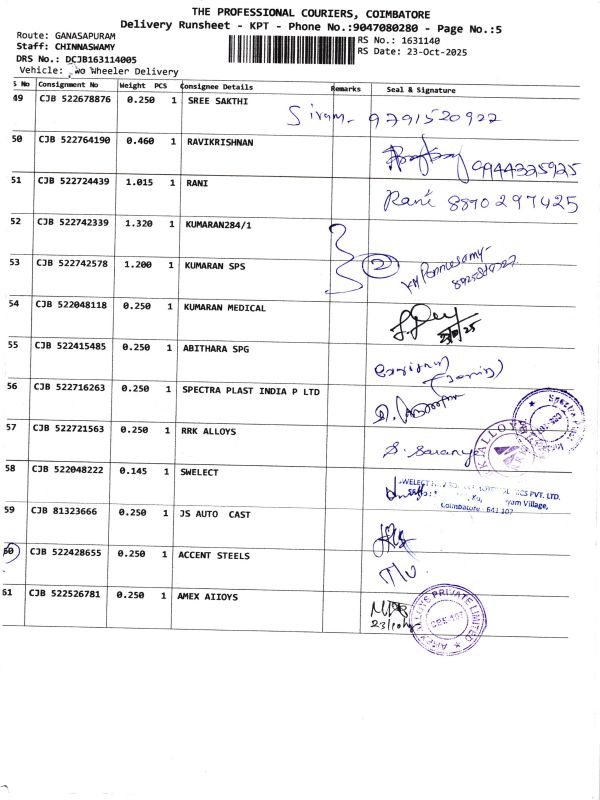 THE PROFESSIONAL COURIERS, COIMBATORE
Delivery Runsheet - KPT - Phone No.:9047080280 - Page No.:5
Route: GANASAPURAM
RS No.: 1631140
Staff: CHINNASWAMY
RS Date: 23-Oct-2025
DRS No.: DCJB163114005
Vehicle: Two Wheeler Delivery
S No Consignment No Weight PCS Consignee Details Remarks Seal & Signature
49 CJB 522678876 0.250 1 SREE SAKTHI
50 CJB 522764190 0.460 1 RAVIKRISHNAN 9944325925
51 CJB 522724439 1.015 1 RANI Rani 8870297425
52 CJB 522742339 1.320 1 KUMARAN284/1
53 CJB 522742578 1.200 1 KUMARAN SPS 2
54 CJB 522048118 0.250 1 KUMARAN MEDICAL
55 CJB 522415485 0.250 1 ABITHARA SPG
56 CJB 522716263 0.250 1 SPECTRA PLAST INDIA P LTD
57 CJB 522721563 0.250 1 RRK ALLOYS S. Sarany
58 CJB 522048222 0.145 1 SWELECT
PVT. LTD.
Village,
Coimbatore - 641 107
59 CJB 81323666 0.250 1 JS AUTO CAST
60 CJB 522428655 0.250 1 ACCENT STEELS
61 CJB 522526781 0.250 1 AMEX AIIOYS
ALLOYS PRIVATE LIMITED